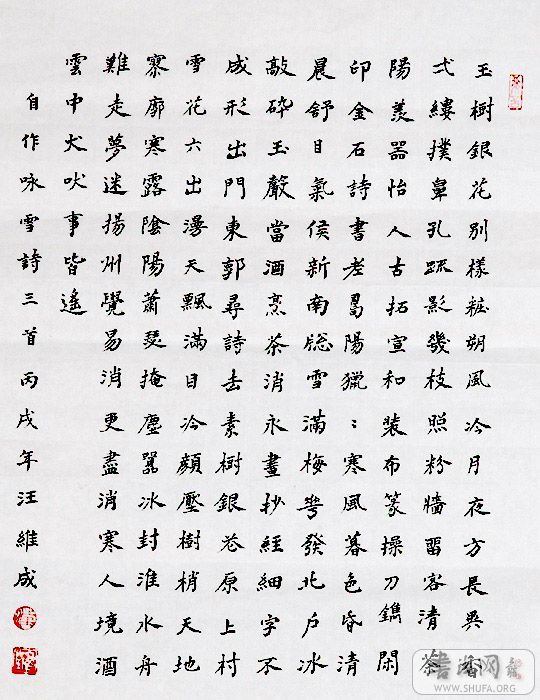 玉樹銀花別樣粧朔風冷月夜方長異香
弍縷撲鼻孔疏影幾枝照粉牆留客清茶
陽羨器怡人古拓宣和裝布篆操刀鐫閑
印金石詩書老曷陽獵〻寒風暮色昏清
晨舒目氣候新南牕雪滿梅萼發北戶冰
敲碎玉聲當酒烹茶消永晝抄經細字不
成形出門東郭尋詩去素樹銀花原上村
雪花六出漫天飄滿目冷顏壓樹梢天地
寥廓寒露陰陽蕭瑟掩塵囂冰封淮水舟
難走夢迷揚州覺易消更盡消寒人境酒
雲中犬吠事皆遙
自作咏雪詩三首丙戌年汪維成
WWW.SHUFA.ORG